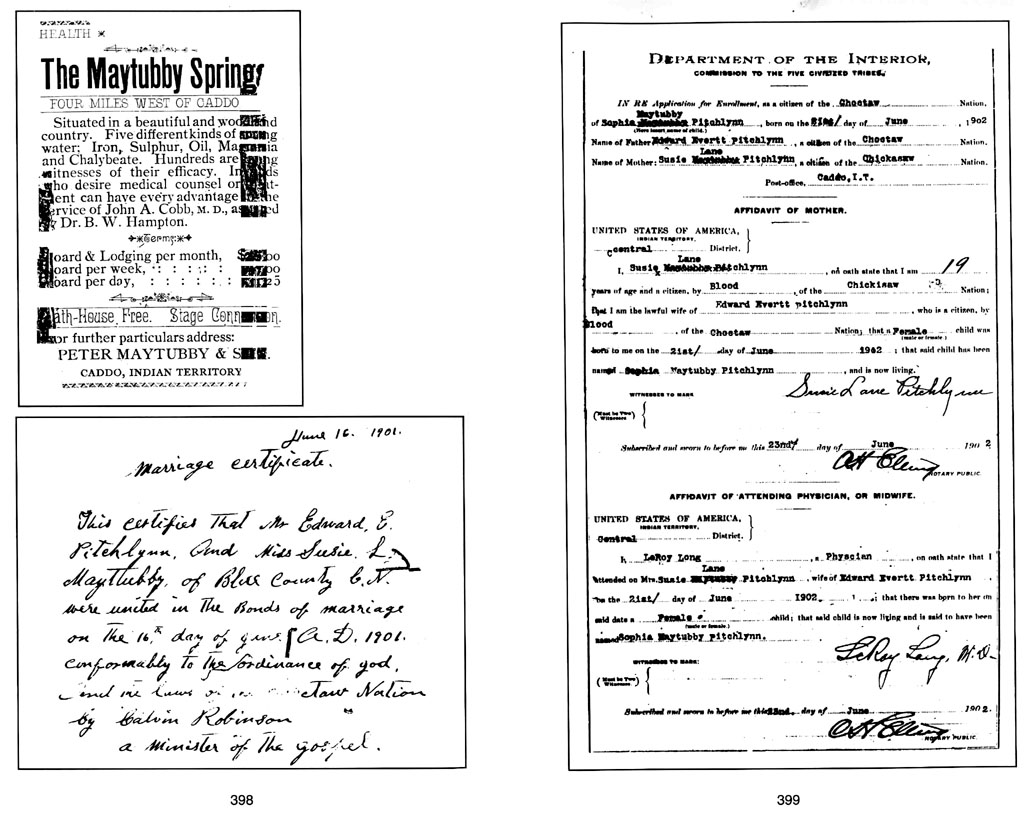 HEALTH *
The Maytubby Springs
FOUR MILES WEST OF CADDO
Situated in a beautiful and
country. Five different kinds of
water: Iron, Sulphur, Oil,
and Chalybeate. Hundreds are
witnesses of their efficacy.
who desire medical counsel or
ment can have every advantage
service of John A. Cobb, M. D.,
Dr. B. W. Hampton.
Terms:
Board & Lodging per month,
Board per week, : : : : :
Board per day, : : : : : :
Bath-House Free. Stage
For further particulars address:
PETER MAYTUBBY &
CADDO, INDIAN TERRITORY
June 16. 1901.
Marriage certificate.
This certifies That Mr Edward, E.
Pitchlynn, And Miss Susie. L.
Maytubby, of Blue County C.N.
were united in The Bonds of marriage
on The 16th day of June A.D. 1901.
conformably to the ordinance of god,
and Nation
by Calvin Robinson
a Minister of The gospel.
398
DEPARTMENT OF THE INTERIOR,
COMMISSION TO THE FIVE CIVILIZED TRIBES.
IN RE Application for Enrollment, as a citizen of the Choctaw Nation,
Maytubby
of Sophia Pitchlynn, born on the 21st/ day of June, 1902
(Here insert name of child.)
Name of Father: Edward Evertt Pitchlynn, a citizen of the Choctaw Nation.
Lane
Name of Mother: Susie Pitchlynn, a citizen of the Chickasaw Nation.
Post-office, Caddo, I.T.
AFFIDAVIT OF MOTHER.
UNITED STATES OF AMERICA,
INDIAN TERRITORY,
Central District.
Lane
I, Susie Pitchlynn, on oath state that I am 19
years of age and a citizen, by Blood, of the Chickisaw Nation;
that I am the lawful wife of Edward Evertt Pitchlynn, who is a citizen, by
Blood, of the Choctaw Nation; that a Female child was
(male or female)
born to me on the 21st/ day of June 1902; that said child has been
named Sophia Maytubby Pitchlynn, and is now living.
Susie Lane Pitchlynn
WITNESSES TO MARK
(Must be Two Witnesses)
Subscribed and sworn to before me this 22nd/ day of June 1902
NOTARY PUBLIC.
AFFIDAVIT OF ATTENDING PHYSICIAN, OR MIDWIFE.
UNITED STATES OF AMERICA,
INDIAN TERRITORY,
Central District.
I, LeRoy Long, a Physcian, on oath state that I
Lane
attended on Mrs. Susie Pitchlynn, wife of Edward Evertt Pitchlynn
on the 21st/ day of June 1902; that there was born to her on
said date a Female child; that said child is now living and is said to have been
(male or female.)
named Sophia Maytubby Pitchlynn.
LeRoy Long, M.D.
WITNESSES TO MARK:
(Must be Two Witnesses)
Subscribed and sworn to before me this 22nd. day of June 1902.
NOTARY PUBLIC.
399